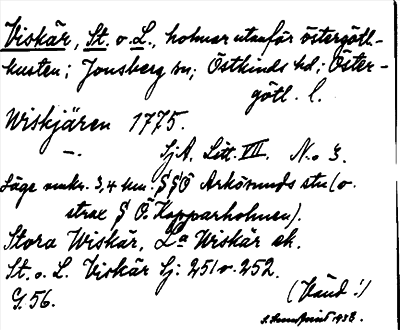 Viskär, St. o. L., holmar utanför östergötl.-
kusten; Jonsberg sn; Östkinds hd; Öster-
götl. l.
Wiskjären 1775.
—. SjA. Litt. VII. N.o 3.
Läge omkr. 3,4 km. SSÖ Arkösunds stn (o.
strax S Ö. Kopparholmen).
Stora Wiskär, La Wiskär ek.
St. o. L. Viskär Sj: 251 o. 252.
G. 56.
(Vänd!)
1938.